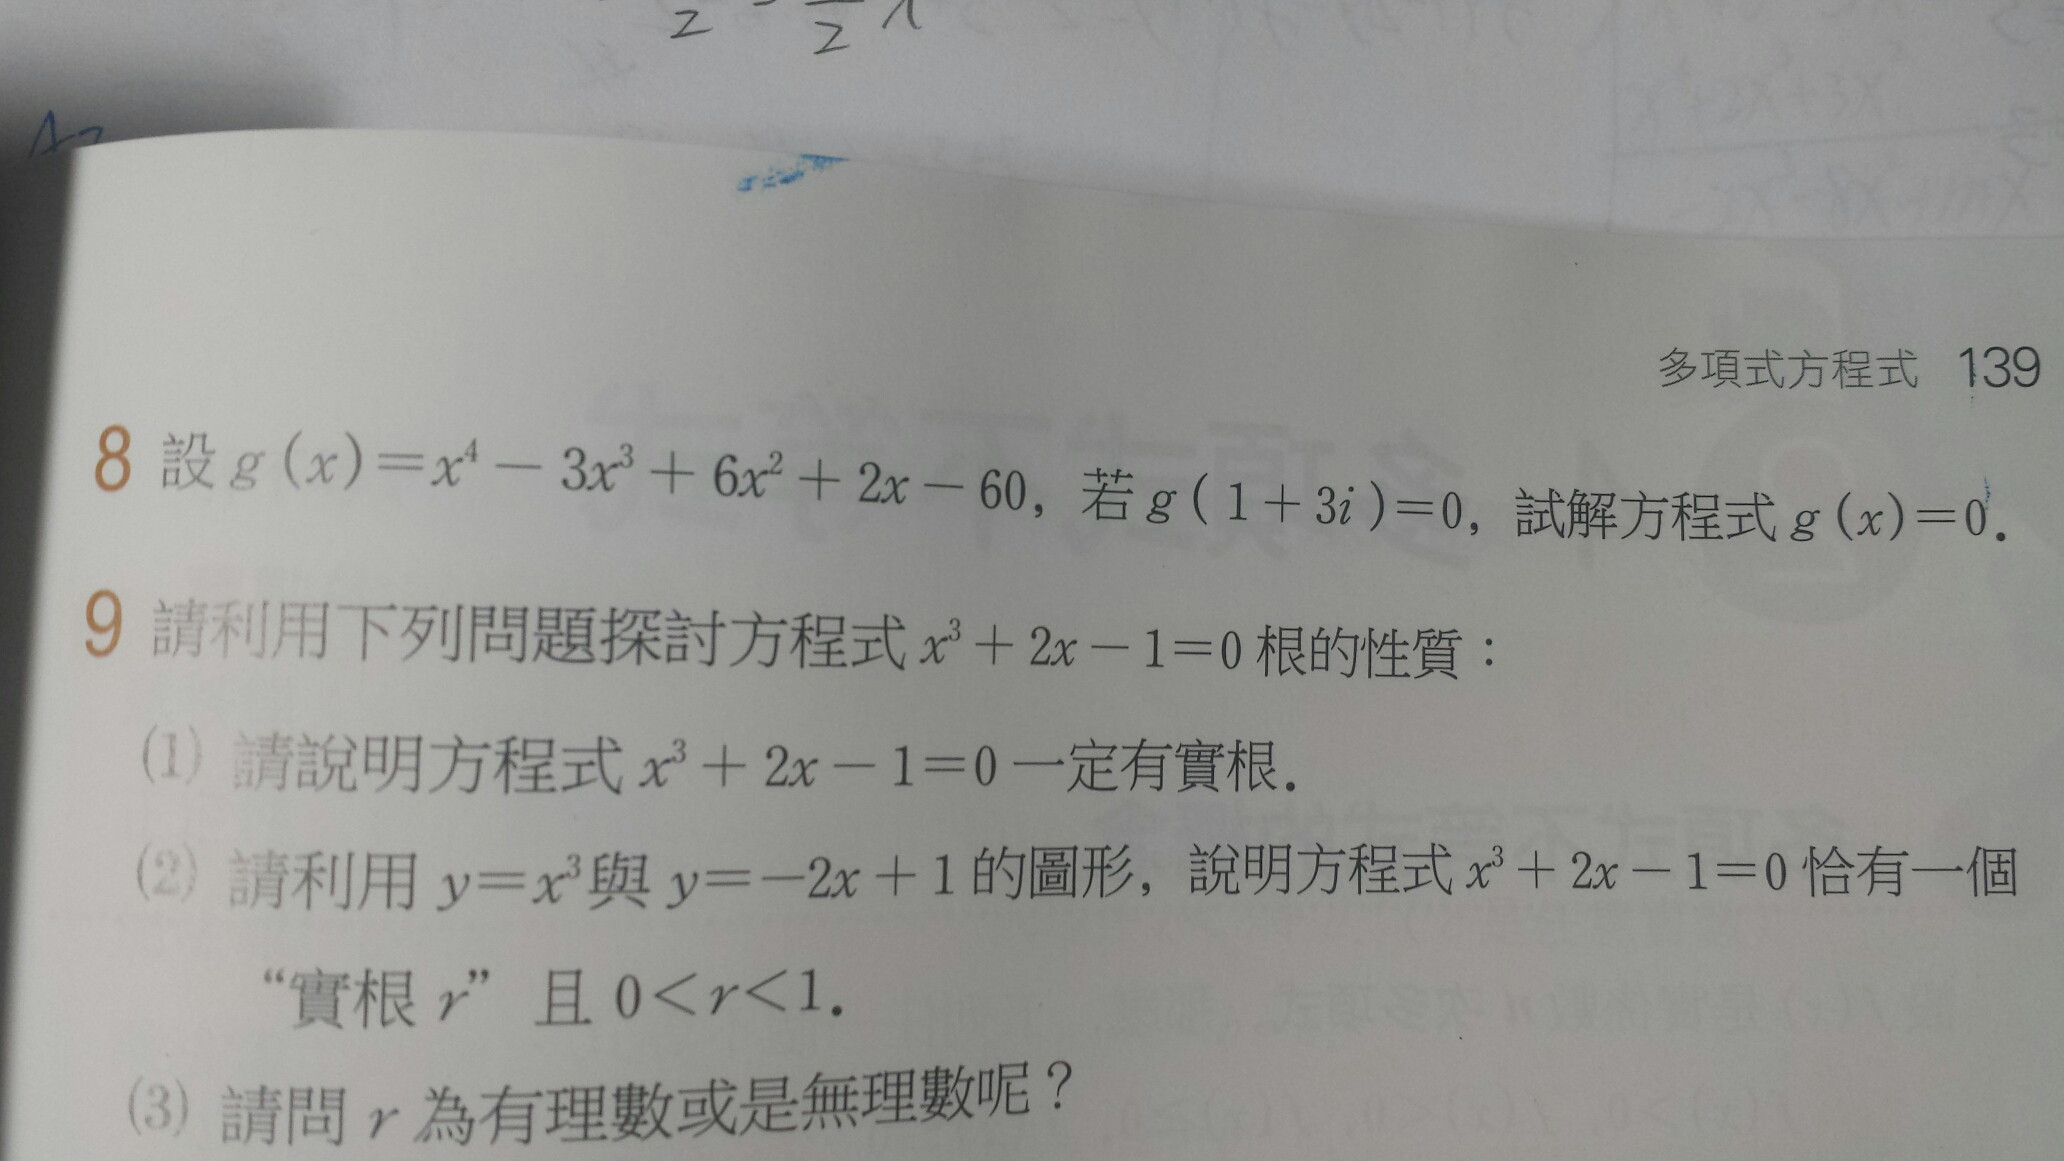 多項式方程式 139
8 設 g(x)=x⁴－3x³＋6x²＋2x－60，若 g(1＋3i)=0，試解方程式 g(x)=0．
9 請利用下列問題探討方程式 x³＋2x－1=0 根的性質：
(1) 請說明方程式 x³＋2x－1=0 一定有實根．
(2) 請利用 y=x³與 y=－2x＋1 的圖形，說明方程式 x³＋2x－1=0 恰有一個
“實根 r” 且 0＜r＜1．
(3) 請問 r 為有理數或是無理數呢？